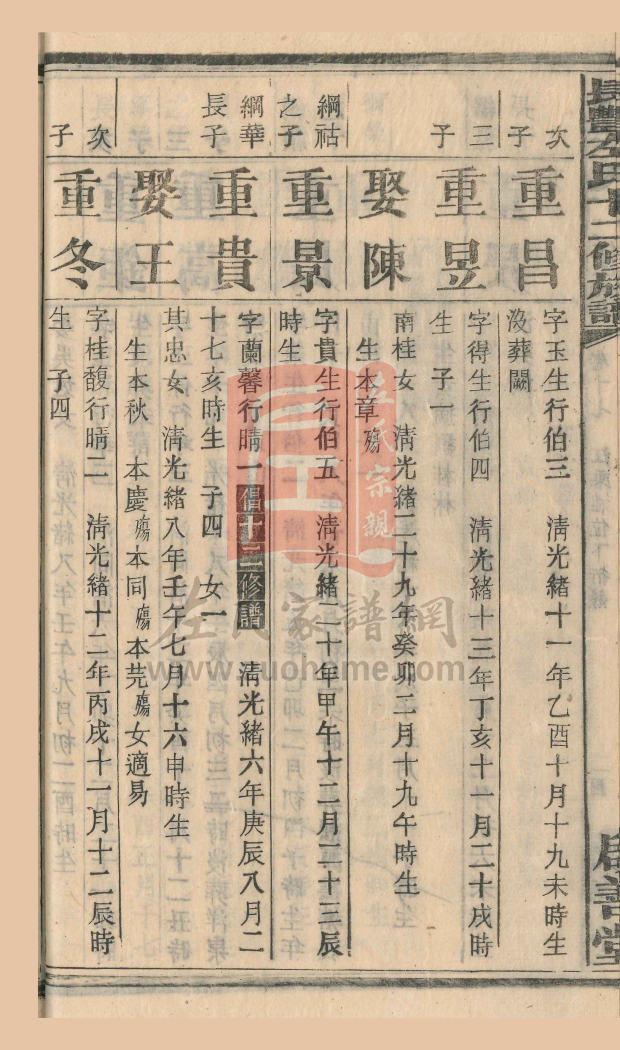 長豐左氏十二修族譜
啟善堂
次子
重昌
字玉生行伯三 清光緒十一年乙酉十月十九未時生
沒葬闕
三子
重昱
字得生行伯四 清光緒十三年丁亥十一月二十戌時
生 子一
娶陳
南桂女 清光緒二十九年癸卯二月十九午時生
生本章殤
綱祜之子
重景
字貴生行伯五 清光緒二十年甲午十二月二十三辰
時生
綱華長子
重貴
字蘭馨行晴一倡十二修譜 清光緒六年庚辰八月二
十七亥時生 子四 女一
娶王
其忠女 清光緒八年壬午七月十六申時生
生本秋 本慶殤本同殤本茺殤女適易
次子
重冬
字桂馥行晴二 清光緒十二年丙戌十一月十二辰時
生 子四
左氏宗親
左氏家譜網
www.zuohome.com